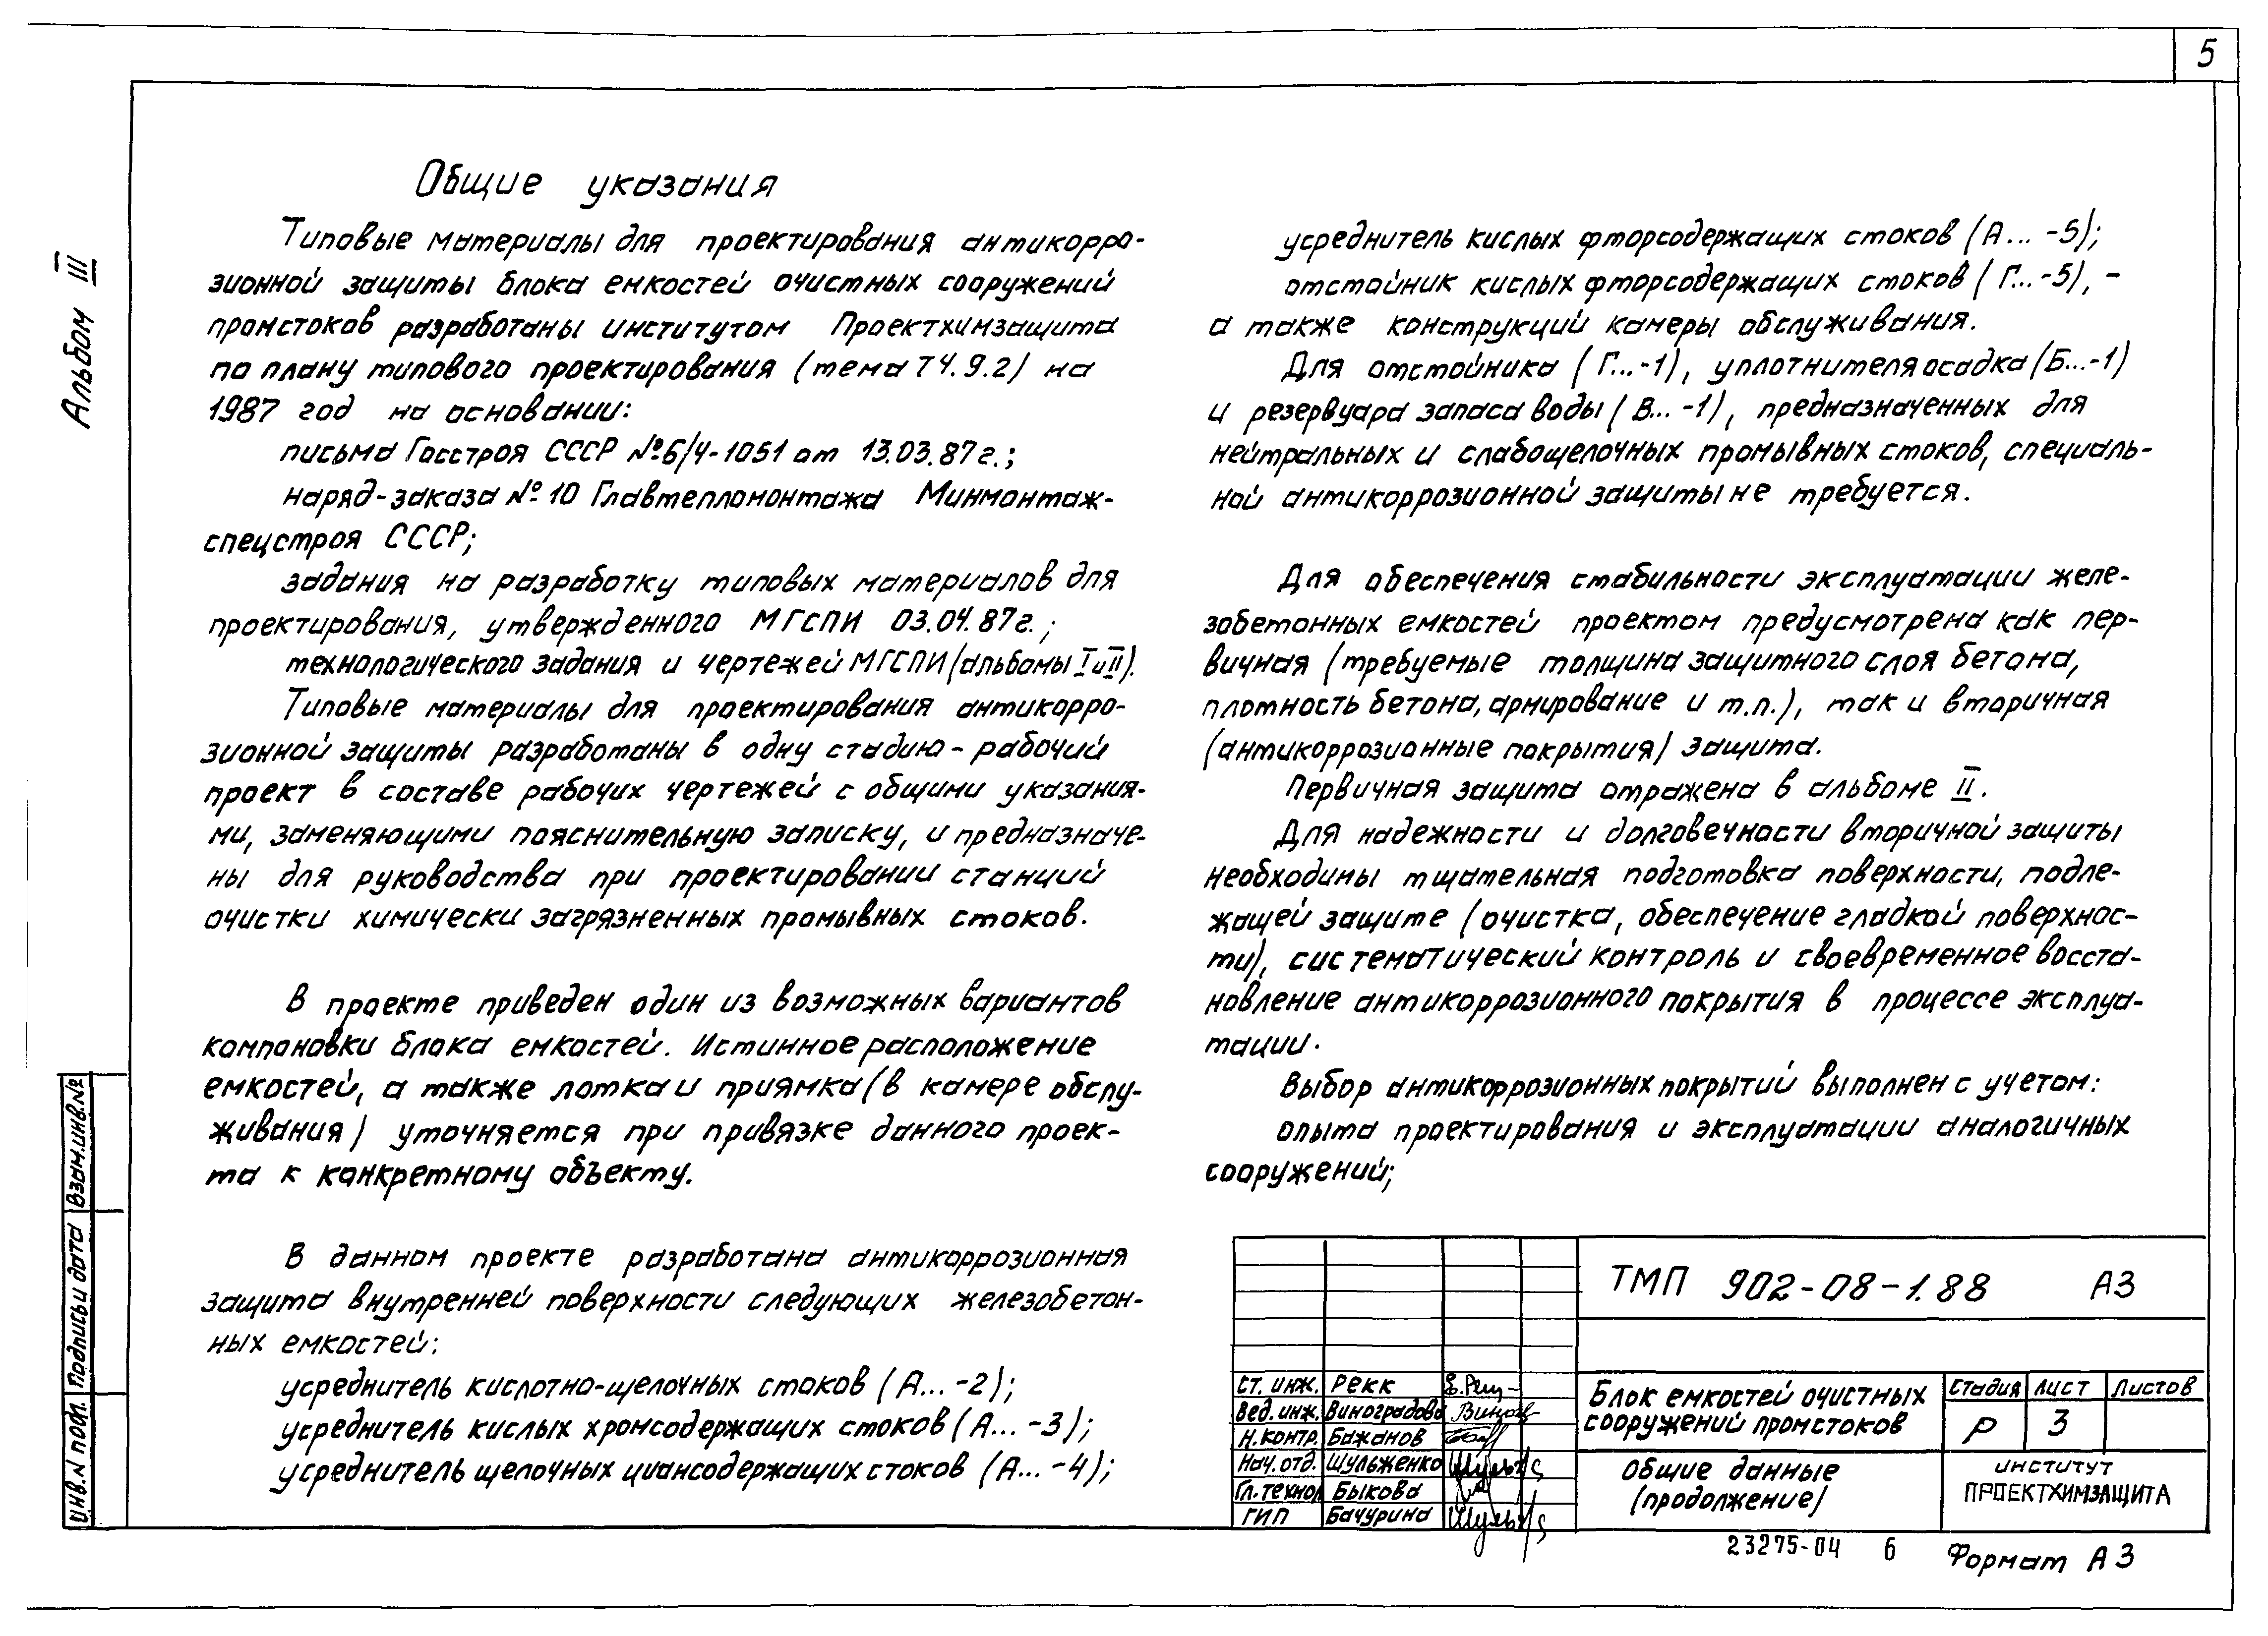 5
Альбом III
Общие указания
Типовые материалы для проектирования антикорро-
зионной защиты блока емкостей очистных сооружений
промстоков разработаны институтом Проектхимзащита
по плану типового проектирования (тема Т4.9.2) на
1987 год на основании:
письма Госстроя СССР №6/4-1051 от 13.03.87г.;
наряд-заказа №10 Главтепломонтажа Минмонтаж-
спецстроя СССР;
задания на разработку типовых материалов для
проектирования, утвержденного МГСПИ 03.04.87г.;
технологического задания и чертежей МГСПИ (альбомы I и II).
Типовые материалы для проектирования антикорро-
зионной защиты разработаны в одну стадию - рабочий
проект в составе рабочих чертежей с общими указания-
ми, заменяющими пояснительную записку, и предназначе-
ны для руководства при проектировании станций
очистки химически загрязненных промывных стоков.
В проекте приведен один из возможных вариантов
компоновки блока емкостей. Истинное расположение
емкостей, а также лотка и приямка (в камере обслу-
живания) уточняется при привязке данного проек-
та к конкретному объекту.
В данном проекте разработана антикоррозионная
защита внутренней поверхности следующих железобетон-
ных емкостей:
усреднитель кислотно-щелочных стоков (А... -2);
усреднитель кислых хромсодержащих стоков (А... -3);
усреднитель щелочных циансодержащих стоков (А... -4);
усреднитель кислых фторсодержащих стоков (А... -5);
отстойник кислых фторсодержащих стоков (Г...-5), -
а также конструкций камеры обслуживания.
Для отстойника (Г...-1), уплотнителя осадка (Б...-1)
и резервуара запаса воды (В... -1), предназначенных для
нейтральных и слабощелочных промывных стоков, специаль-
ной антикоррозионной защиты не требуется.
Для обеспечения стабильности эксплуатации желе-
зобетонных емкостей проектом предусмотрена как пер-
вичная (требуемые толщина защитного слоя бетона,
плотность бетона, армирование и т.п.), так и вторичная
(антикоррозионные покрытия) защита.
Первичная защита отражена в альбоме II.
Для надежности и долговечности вторичной защиты
необходимы тщательная подготовка поверхности, подле-
жащей защите (очистка, обеспечение гладкой поверхнос-
ти), систематический контроль и своевременное восста-
новление антикоррозионного покрытия в процессе эксплуа-
тации.
Выбор антикоррозионных покрытий выполнен с учетом:
опыта проектирования и эксплуатации аналогичных
сооружений;
Инв. N подл. Подпись и дата Взам.инв.№
ТМП 902-08-1.88 АЗ
Ст. инж. Рекк
Вед. инж. Виноградова
Н.контр. Бажанов
Нач. отд. Шульженко
Гл.технол Быкова
ГИП Бачурина
Блок емкостей очистных
сооружений промстоков
Стадия Лист Листов
Р 3
Общие данные
(продолжение)
институт
ПРОЕКТХИМЗАЩИТА
23275-04 6
Формат А3